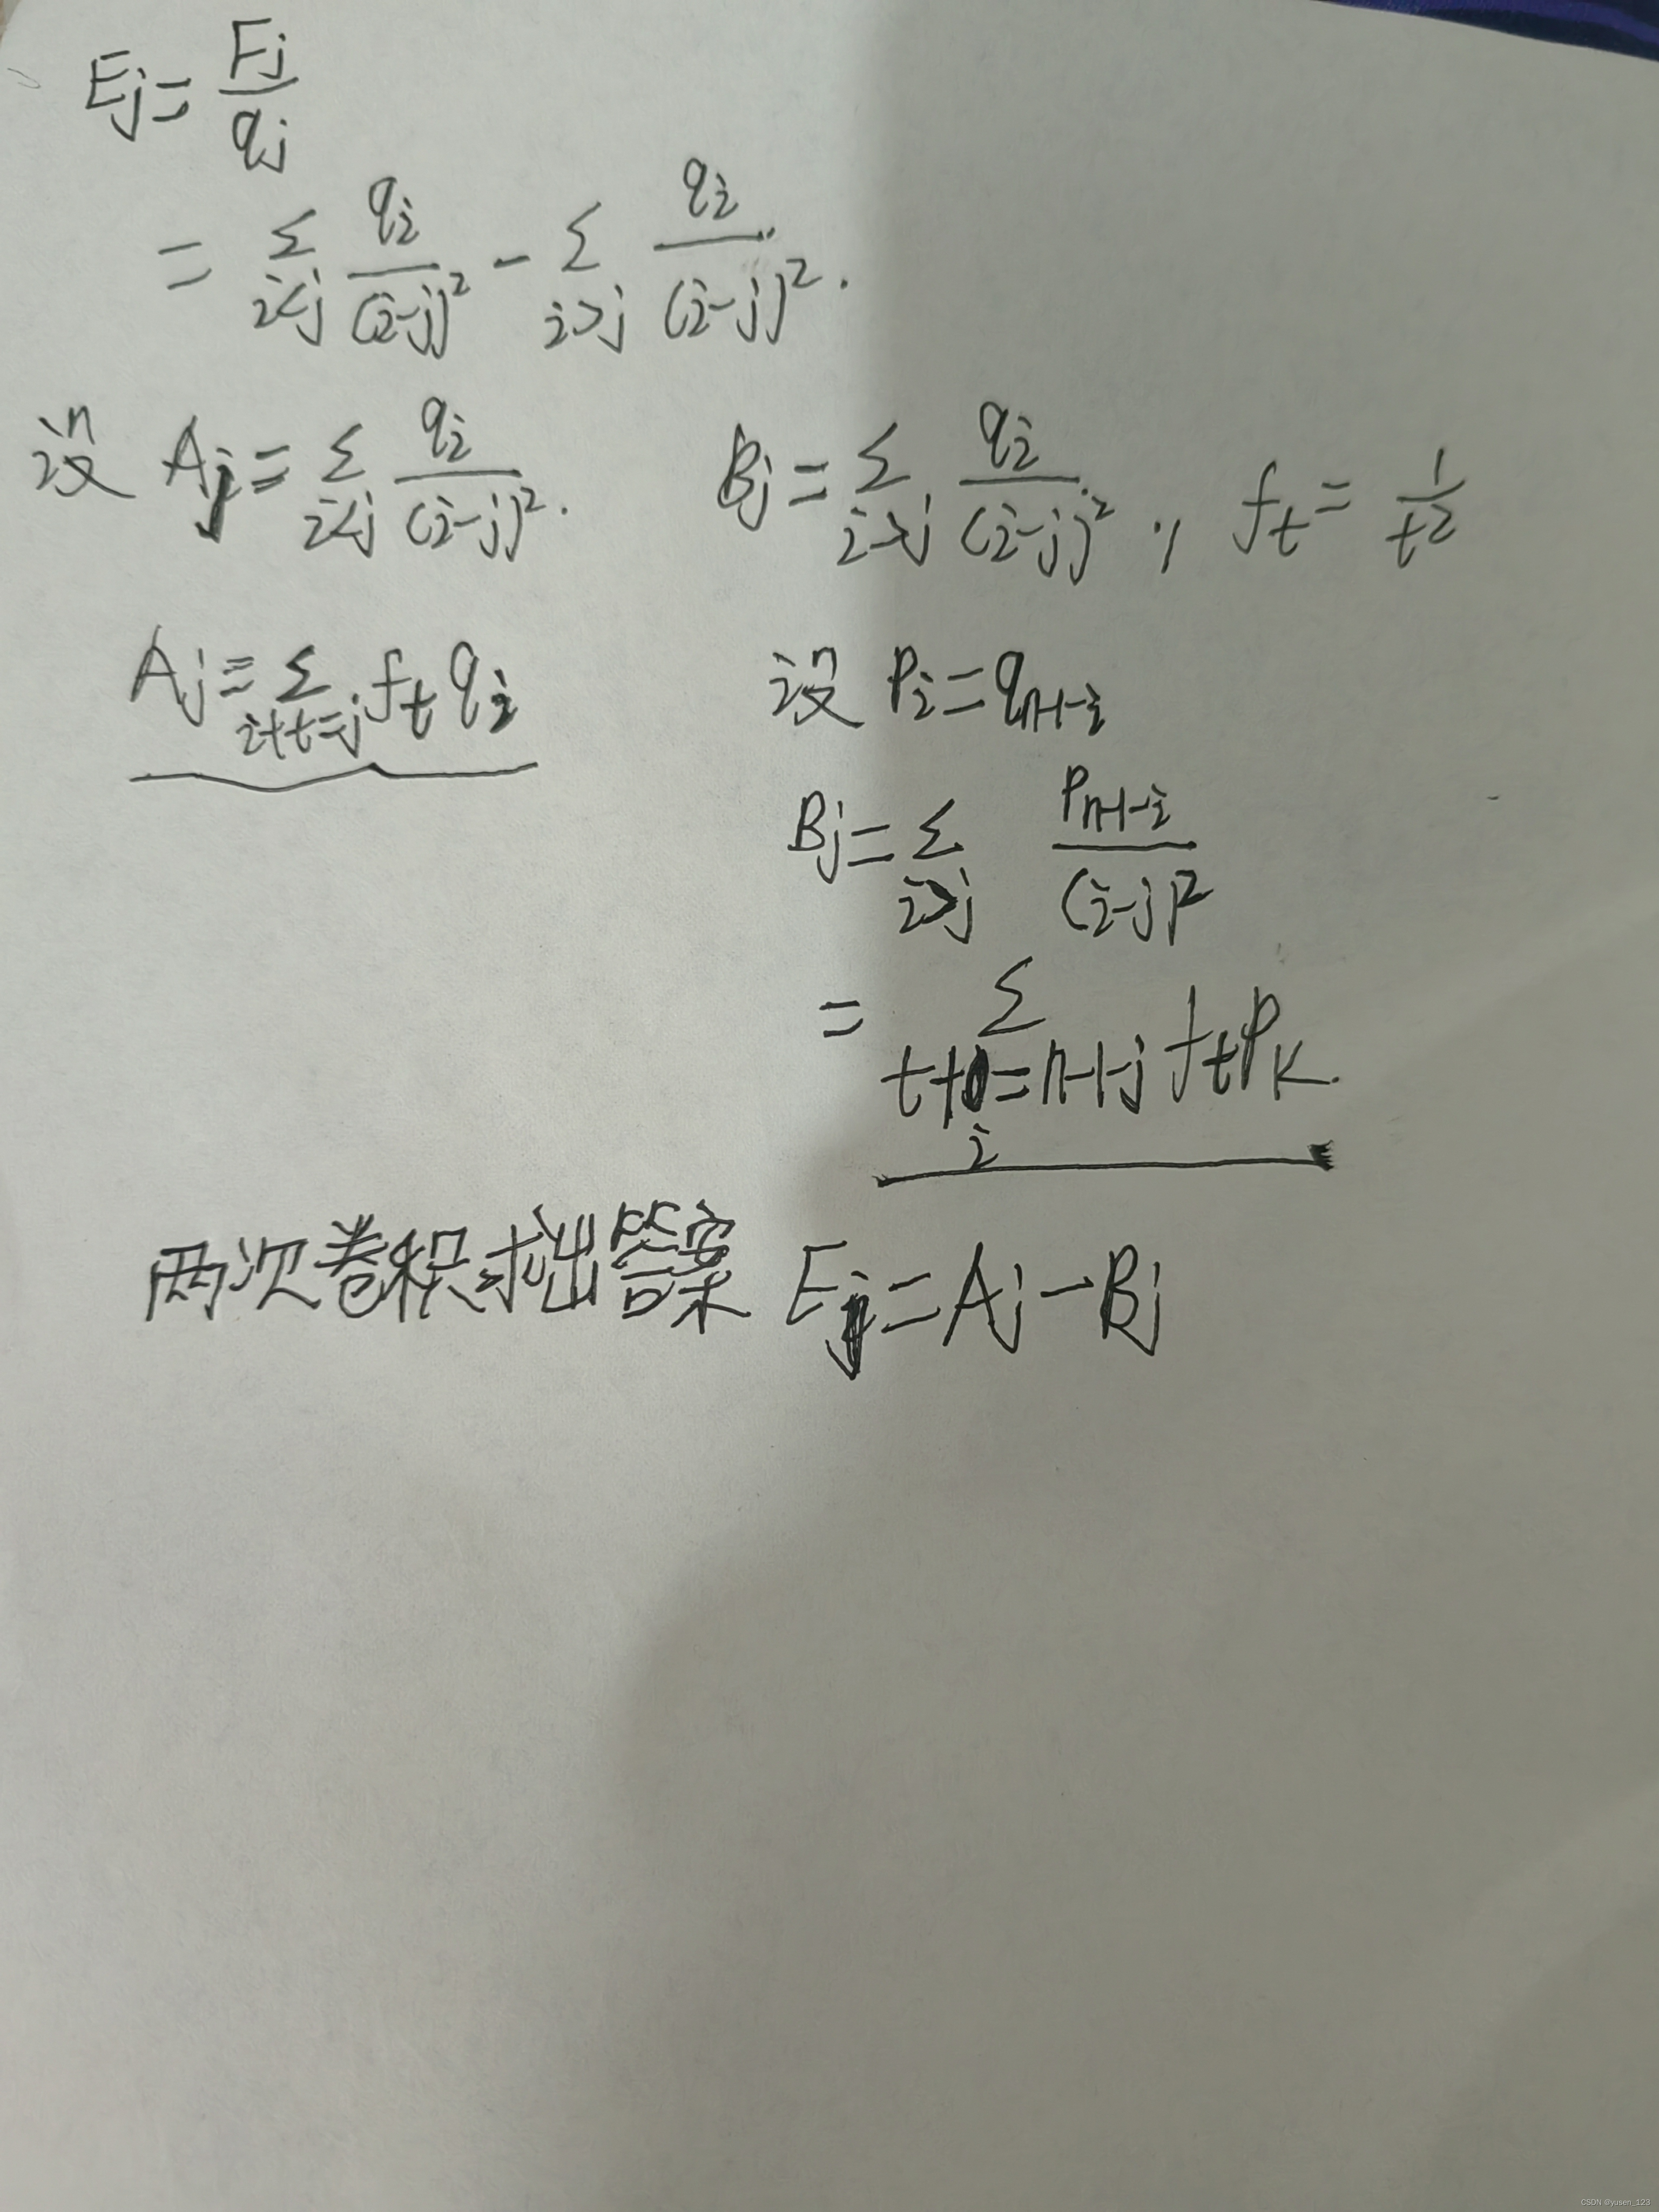 Ej = Fj / qj
= Σ_{i<j} qi / (i-j)² - Σ_{i>j} qi / (i-j)².
设 Aj = Σ_{i<j} qi / (i-j)². Bj = Σ_{i>j} qi / (i-j)², ft = 1 / t²
Aj = Σ_{i+t=j} ft qi
设 Pi = q_{n-1-i}
Bj = Σ_{i>j} P_{n-1-i} / (i-j)²
= Σ_{t+i=n-1-j} ft PK.
两次卷积求出答案 Ej = Aj - Bj
CSDN @yusen_123